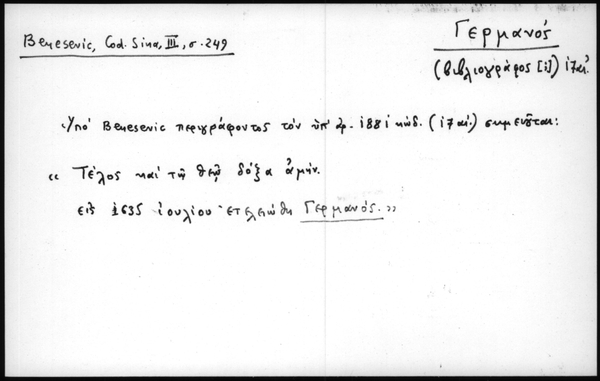 Benesevic, Cod. Sina, III, σ. 249
Γερμανός
(βιβλιογράφος [;]) 17 αἰ.
Ὑπό Benesevic περιγράφοντος τόν ὑπ' ἀρ. 1881 κώδ. (17 αἰ.) σημειοῦται:
« Τέλος καί τῷ θεῷ δόξα ἀμήν.
εἰς 1635 ἰουλίου ἐτελειώθη Γερμανός. »